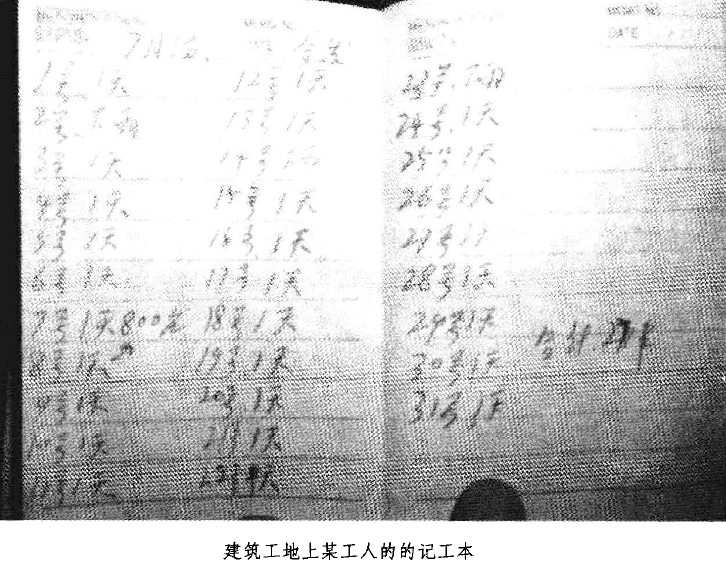 7月份
1号 1天
2号 下雨
3号 1天
4号 1天
5号 1天
6号 1天
7号 1天 800元
8号 1天
9号 1天
10号 1天
11号 1天
12号 1天
13号 1天
14号 下雨
15号 1天
16号 1天
17号 1天
18号 1天
19号 1天
20号 1天
21号 1天
22号 天
23号 下雨
24号 1天
25号 1天
26号 1天
27号 1天
28号 1天
29号 1天
30号 1天
31号 1天
合计
建筑工地上某工人的的记工本